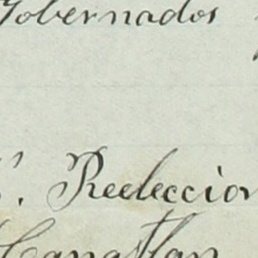 Gobernados
Reeleccion
Canatlan